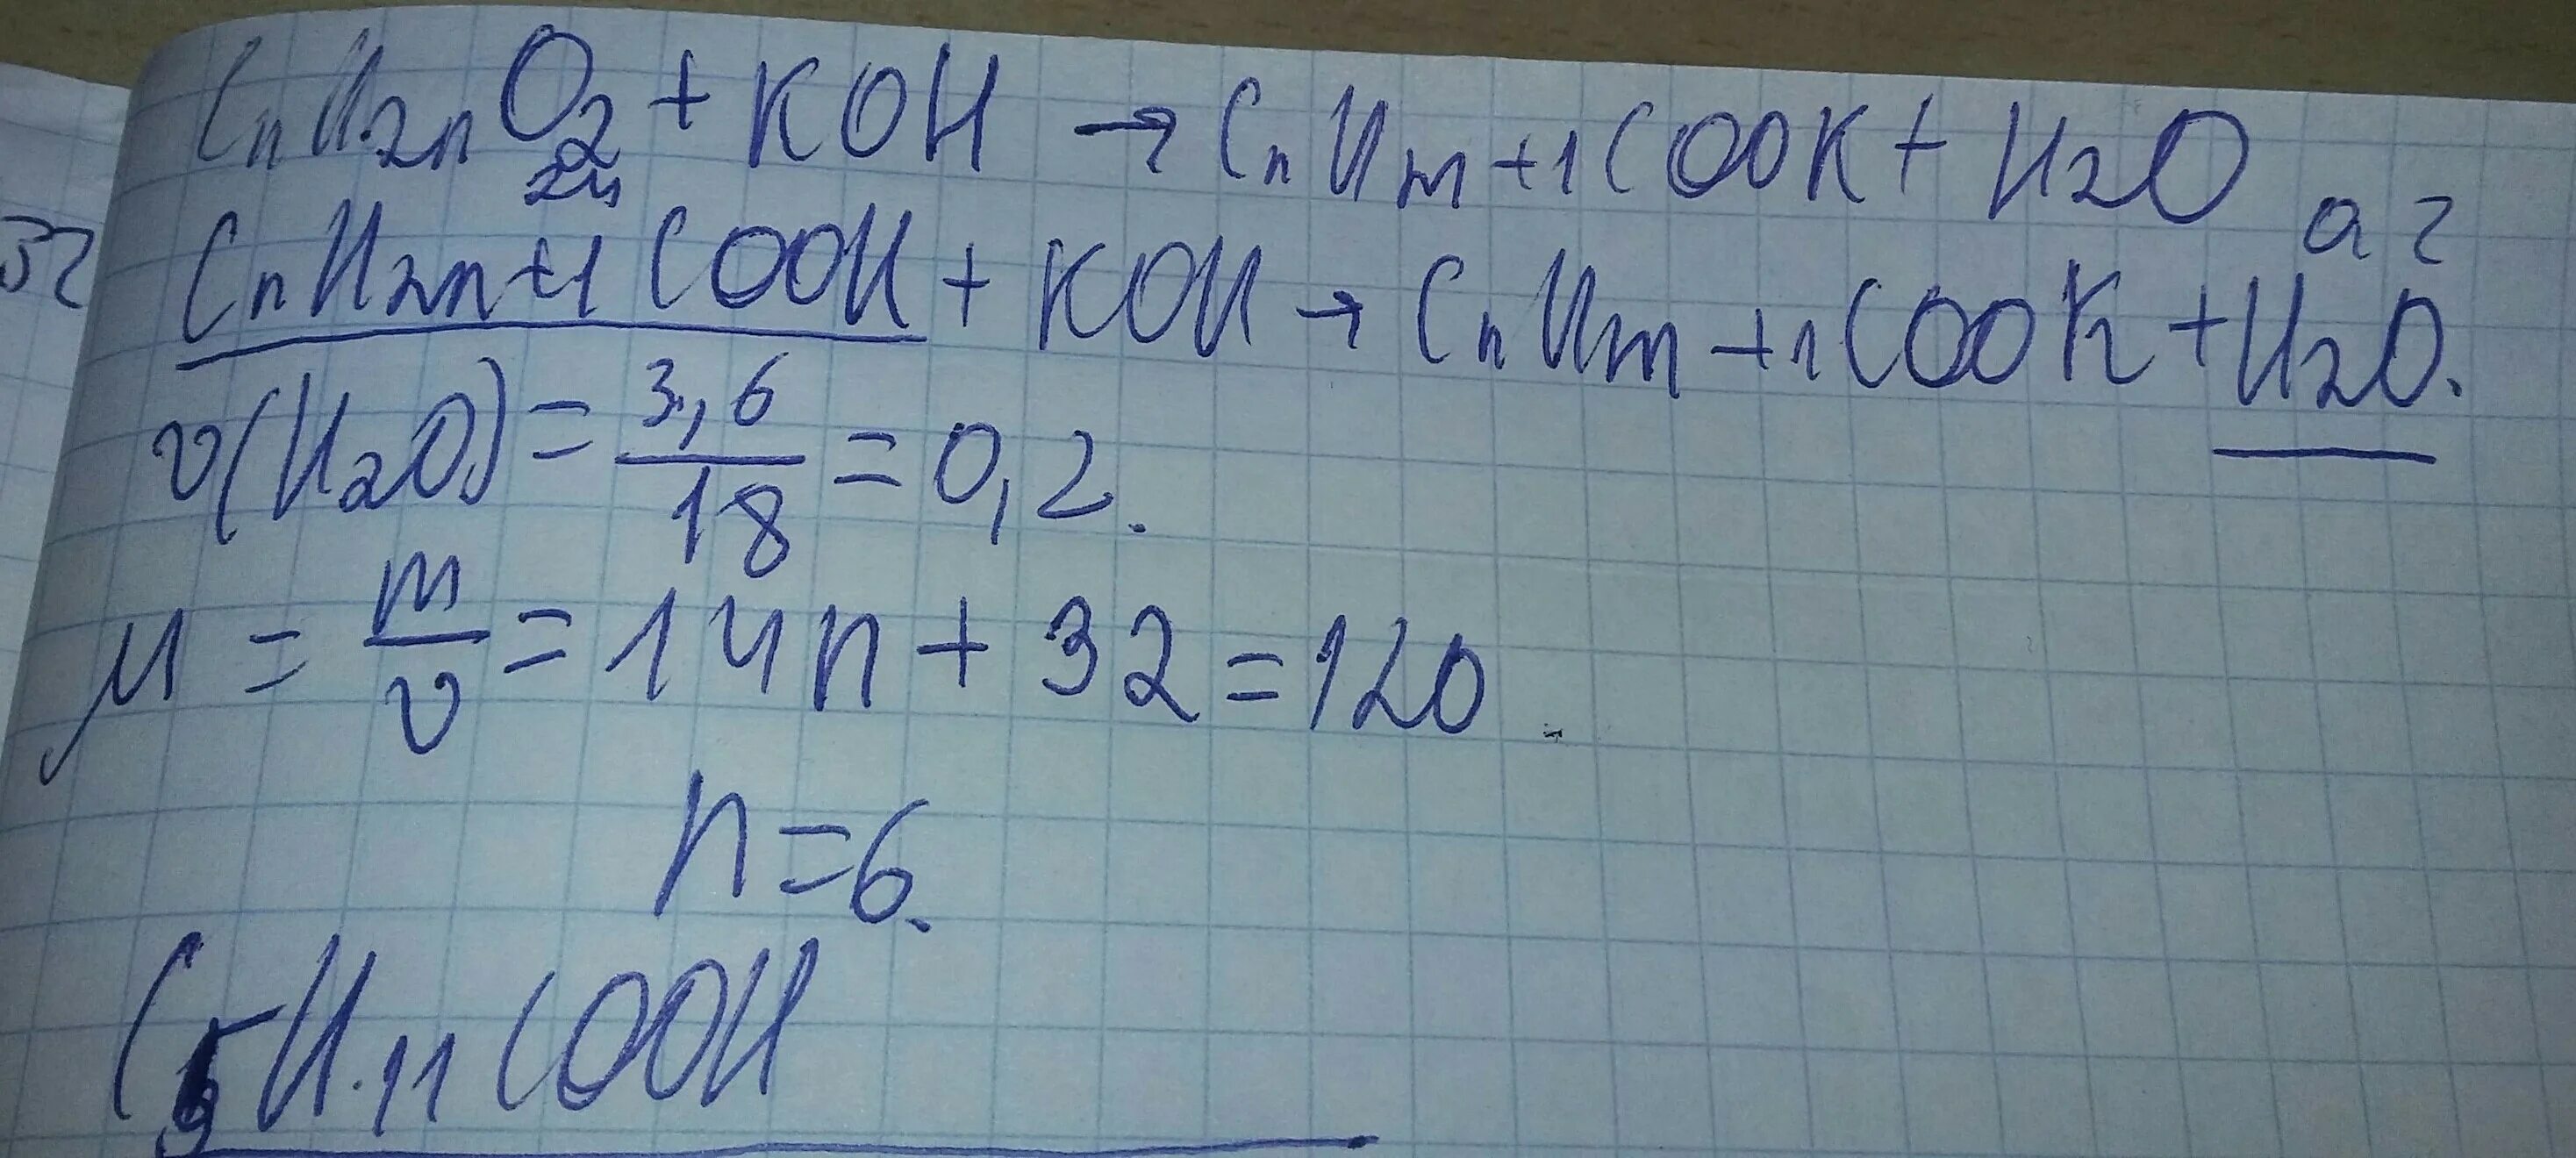 CnH2nO2 + KOH → CnHm+1COOK + H2O
24 а г
CnH2n+1COOH + KOH → CnHm+1COOK + H2O.
ν(H2O) = 3,6/18 = 0,2.
μ = m/ν = 14n + 32 = 120
n = 6.
C5H11COOH